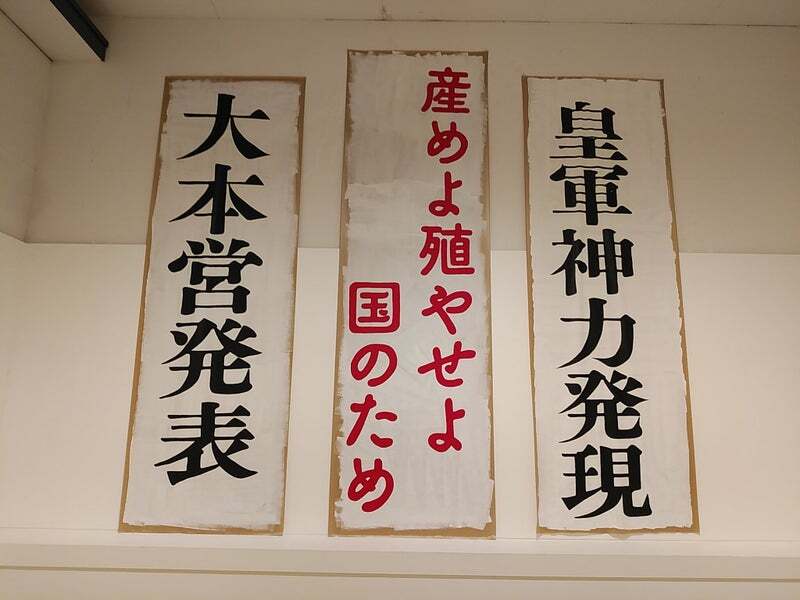 皇軍神力発現
産めよ殖やせよ
国のため
大本営発表